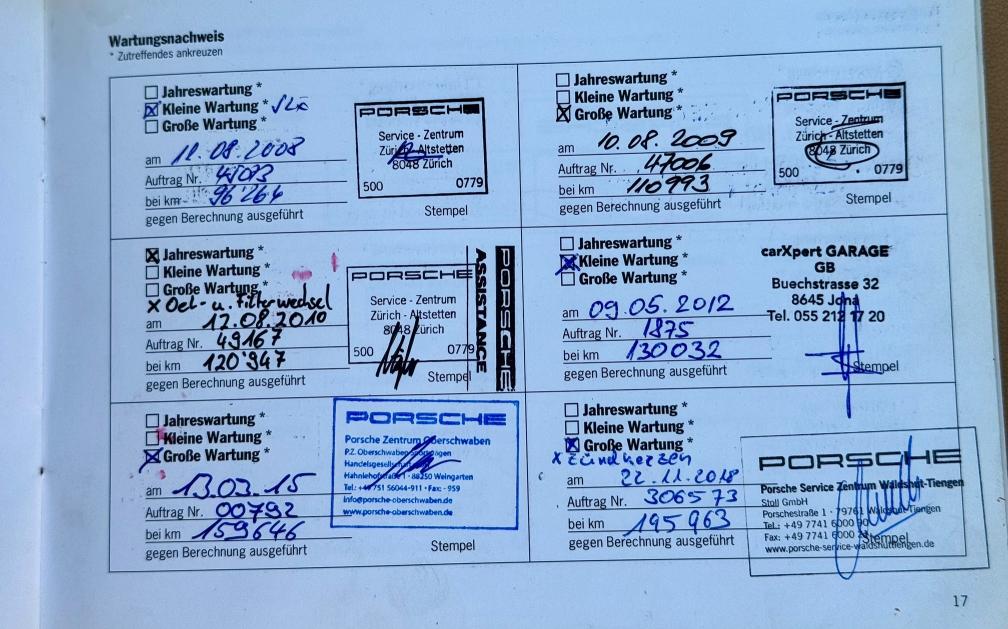 Wartungsnachweis
* Zutreffendes ankreuzen
Jahreswartung *
Kleine Wartung *
Große Wartung *
am 11.08.2008
Auftrag Nr.
bei km 96'264
gegen Berechnung ausgeführt
PORSCHE
Service - Zentrum
Zürich - Altstetten
8048 Zürich
500 0779
Stempel
Jahreswartung *
Kleine Wartung *
Große Wartung *
am 10.08.2009
Auftrag Nr. 47006
bei km 110993
gegen Berechnung ausgeführt
PORSCHE
Service - Zentrum
Zürich - Altstetten
8048 Zürich
500 0779
Stempel
Jahreswartung *
Kleine Wartung *
Große Wartung *
x Oel- u. Filterwechsel
am 12.08.2010
Auftrag Nr. 49167
bei km 120'947
gegen Berechnung ausgeführt
PORSCHE
Service - Zentrum
Zürich - Altstetten
8048 Zürich
500 0779
Stempel
PORSCHE
ASSISTANCE
Jahreswartung *
Kleine Wartung *
Große Wartung *
am 09.05.2012
Auftrag Nr. 1875
bei km 130032
gegen Berechnung ausgeführt
carXpert GARAGE
GB
Buechstrasse 32
8645 Jona
Tel. 055 212 17 20
Stempel
Jahreswartung *
Kleine Wartung *
Große Wartung *
am 13.03.15
Auftrag Nr. 00792
bei km 159646
gegen Berechnung ausgeführt
PORSCHE
Porsche Zentrum Oberschwaben
P.Z. Oberschwaben Sportwagen
Handelsgesellschaft
88250 Weingarten
Tel.: +49 751 56044-911 • Fax: - 959
info@porsche-oberschwaben.de
www.porsche-oberschwaben.de
Stempel
Jahreswartung *
Kleine Wartung *
Große Wartung *
x Zündkerzen
am 22.11.2018
Auftrag Nr. 306573
bei km 195963
gegen Berechnung ausgeführt
PORSCHE
Porsche Service Zentrum Waldshut-Tiengen
Stoll GmbH
Porschestraße 1 · 79761 Waldshut-Tiengen
Tel.: +49 7741 6000 90
Fax: +49 7741 6000
www.porsche-service-waldshuttiengen.de
Stempel
17